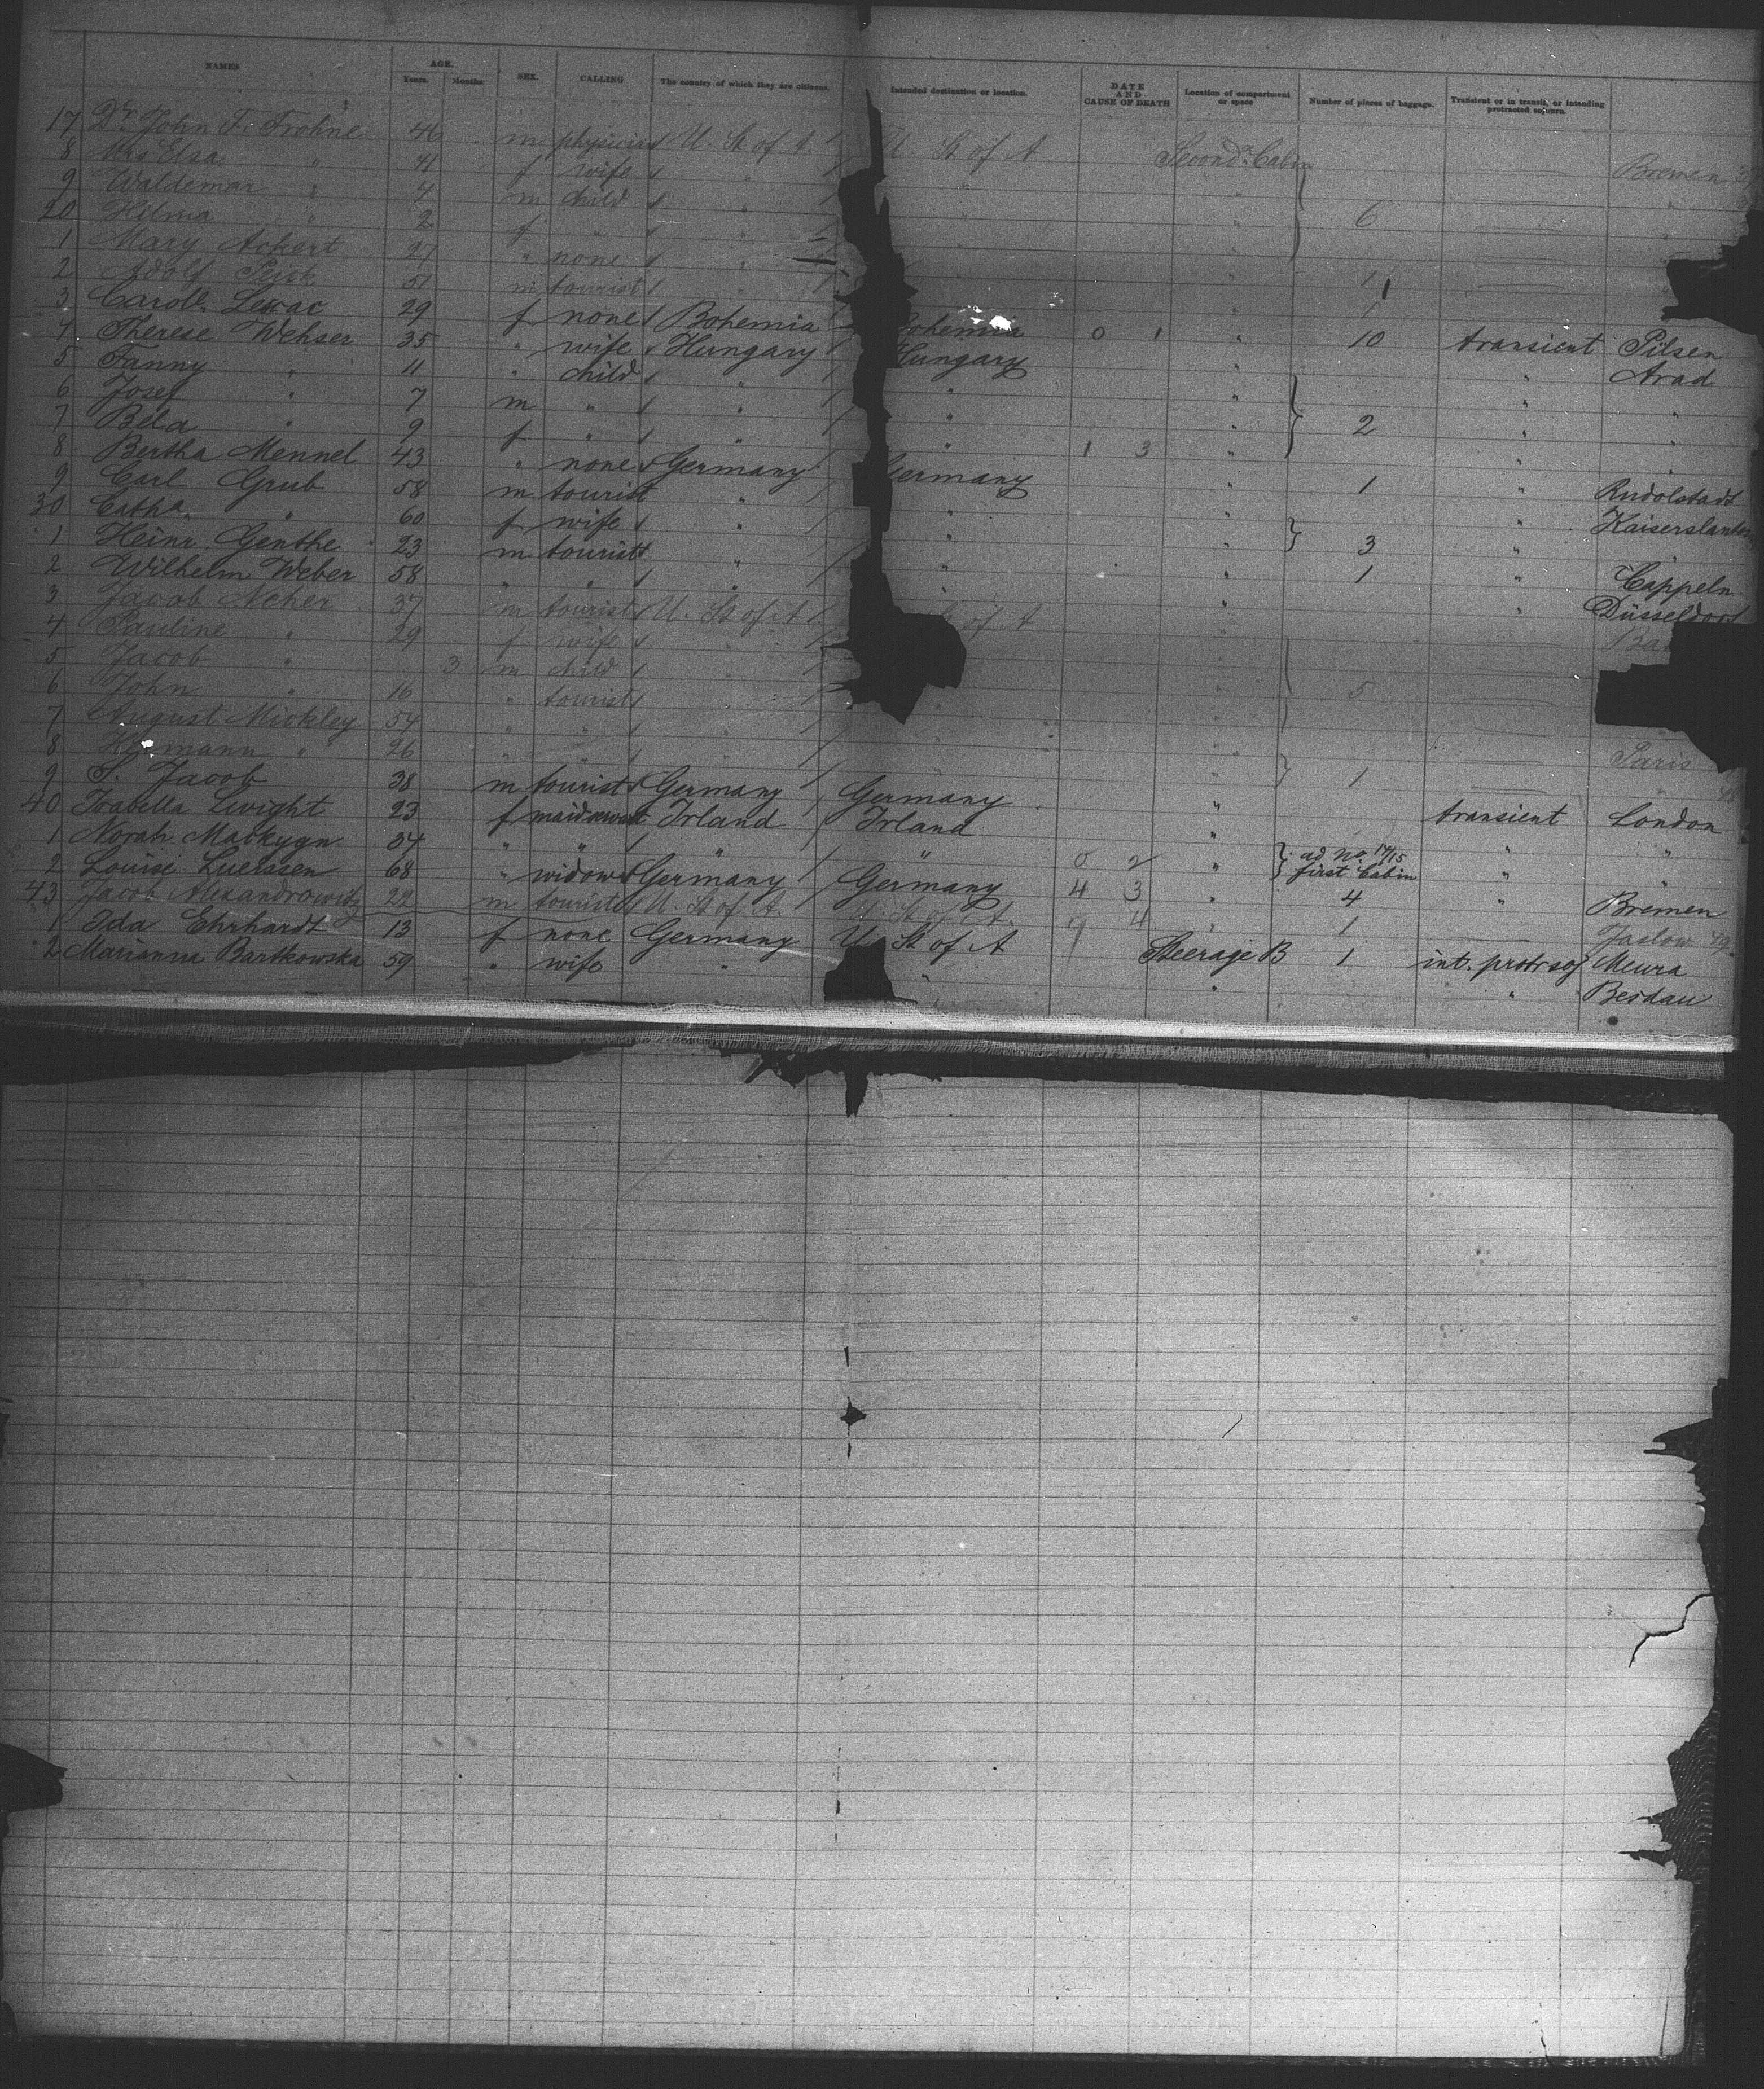 NAMES AGE. Years. Months SEX. CALLING The country of which they are citizens. Intended destination or location. DATE AND CAUSE OF DEATH Location of compartment or space Number of pieces of baggage. Transient or in transit, or intending protracted sojourn.
17 Dr. John F. Frohne 46 m physician U. St of A. U. St of A Second Cabin Bremen
8 Mrs Elsa " 41 f wife " "
9 Waldemar " 4 m child " " 6
20 Hilma " 2 f " " "
1 Mary Ackert 27 " none " 1
2 Adolf Peick 51 m tourist " 1
3 Carol. 29 f none Bohemia Bohemia 0 1 " 10 transient Pilsen
4 Therese Wehser 35 " wife Hungary Hungary " Arad
5 Fanny " 11 " child " " " " "
6 Josef " 7 m " " " " 2 " "
7 Bela " 9 f " " " " "
8 Bertha Mennel 43 " none Germany Germany 1 3 " 1 " Rudolstadt
9 Carl Grub 58 m tourist " " " " Kaiserslautern
30 Catha. " 60 f wife " " " 3 "
1 Heinr. Genthe 23 m tourist " " " 1 " Cappeln
2 Wilhelm Weber 58 " " " " " Düsseldorf
3 Jacob Neher 37 m tourist U. St of A of A
4 Pauline " 29 f wife "
5 Jacob " 3 m child " " 5
6 John " 16 " tourist "
7 August Mickley 54 " " " Paris
8 Hermann " 26 " " " 1
9 S. Jacob 38 m tourist Germany Germany " transient London
40 Isabella 23 f Irland Irland " " "
1 Norah 34 " " " " 0 2 " ad No. 14/15 first Cabin " "
2 Louise Luerssen 68 " widow Germany Germany 4 3 " 4 " Bremen
43 Jacob Alexandrowitz 29 m tourist U. St of A. U. St of A. 9 4 " 1 Jaslow
1 Ida Ehrhardt 13 f none Germany U St of A Steerage B 1 int. protr soj Meura
2 Marianna Bartkowska 59 " wife " " " " Besdau